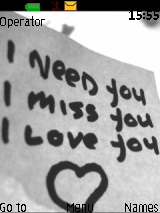 15:55
Operator
I Need you
I miss you
I Love you
Go to Menu Names